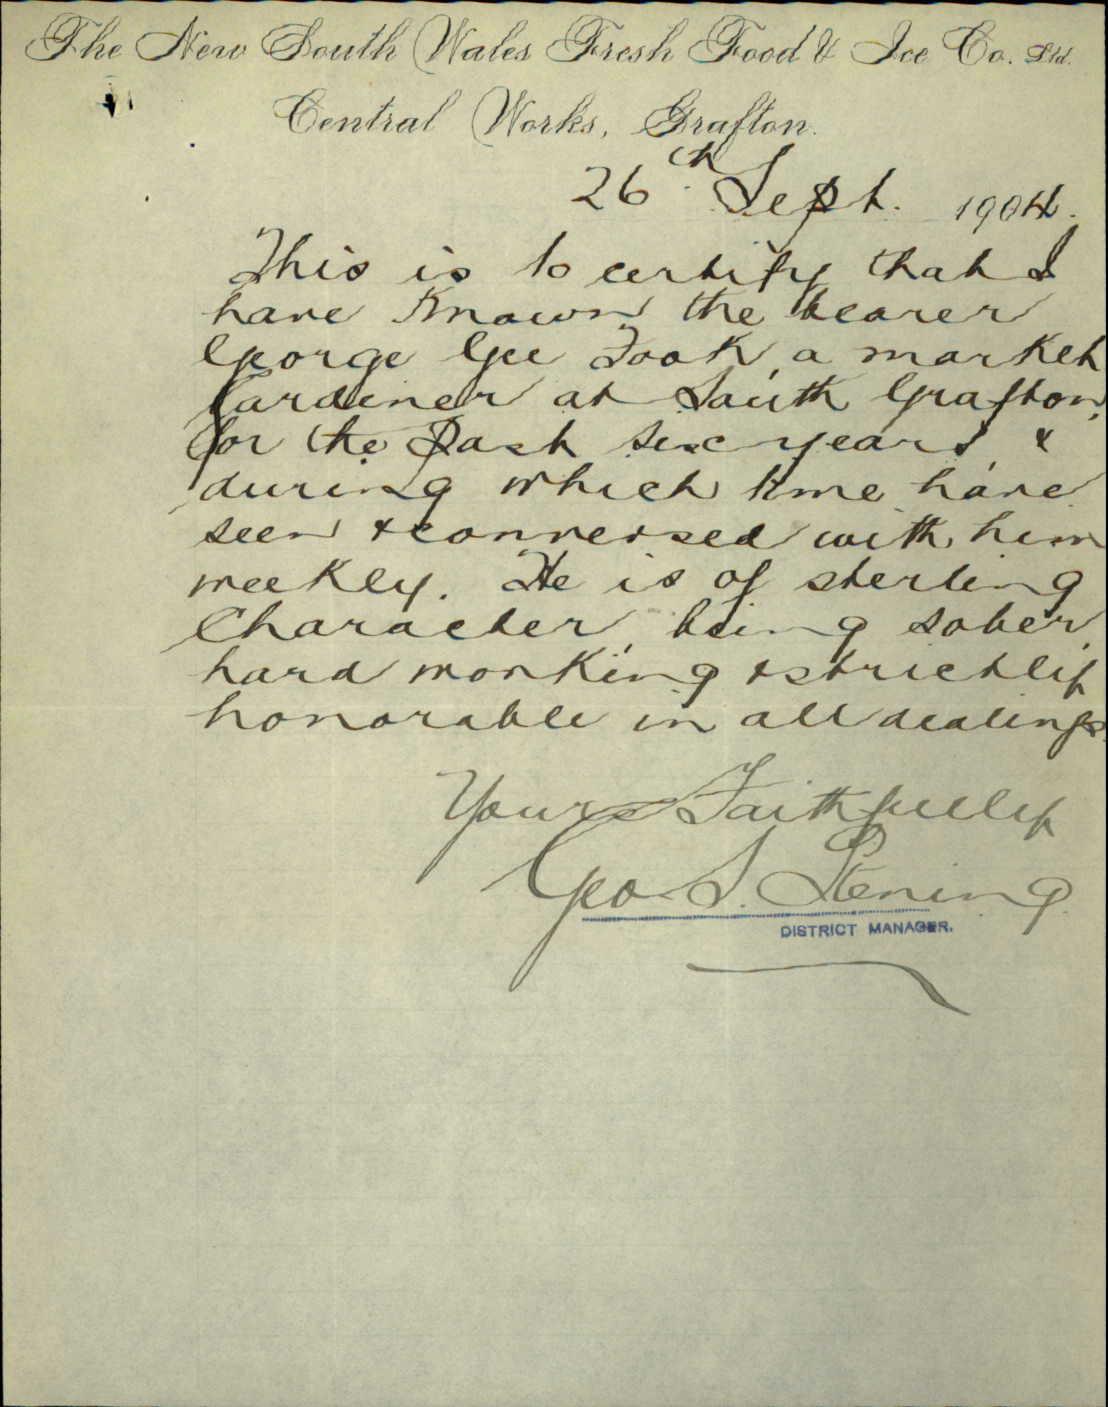 The New South Wales Fresh Food & Ice Co. Ltd.
Central Works, Grafton.
26th Sept. 1904.
This is to certify that I
have known the bearer
George Gee Took, a market
Gardiner at South Grafton,
for the past six years, &
during which time have
seen & conversed with him
weekly. He is of sterling
Character, being sober,
hard working & strictly
honorable in all dealings.
Yours Faithfully
Geo. S. Stening
DISTRICT MANAGER.